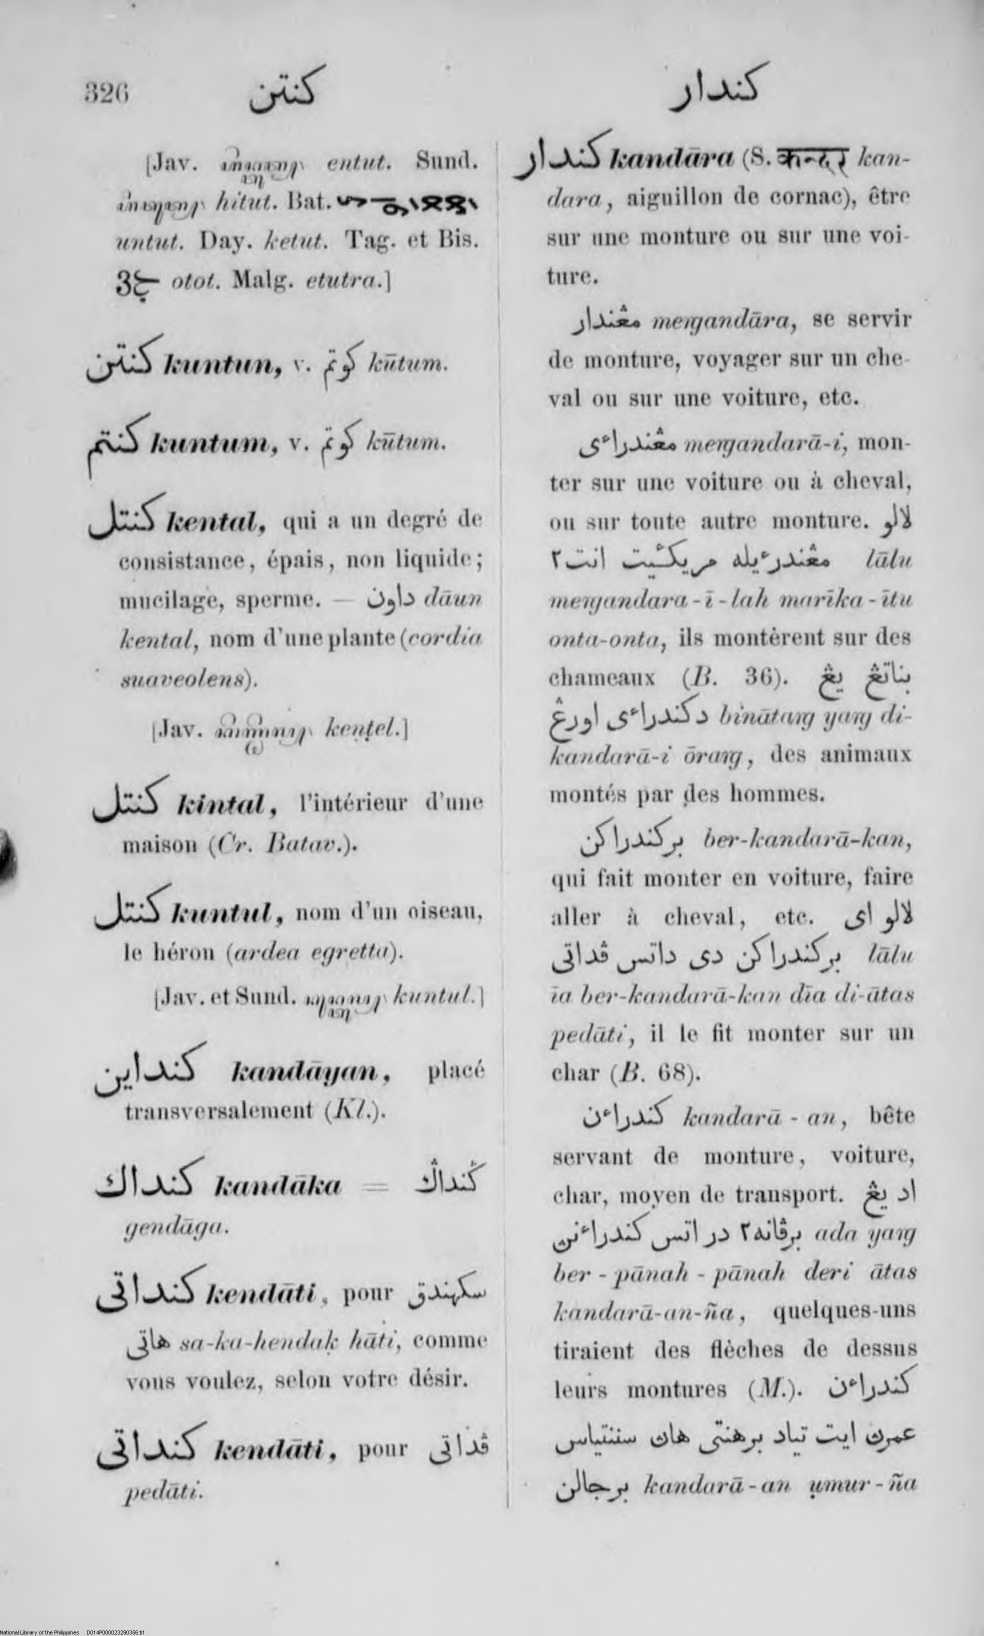 326 كنتن كندار
[Jav. entut. Sund.
hitut. Bat.
untut. Day. ketut. Tag. et Bis.
otot. Malg. etutra.]
كنتن kuntun, v. كوتم kūtum.
كنتم kuntum, v. كوتم kūtum.
كنتل kental, qui a un degré de
consistance, épais, non liquide;
mucilage, sperme. — داون dāun
kental, nom d'une plante (cordia
suaveolens).
[Jav. kenṭel.]
كنتل kintal, l'intérieur d'une
maison (Cr. Batav.).
كنتل kuntul, nom d'un oiseau,
le héron (ardea egretta).
[Jav. et Sund. kuntul.]
كنداين kandāyan, placé
transversalement (Kl.).
كنداك kandāka = ݢنداݢ
gendāga.
كنداتى kendāti, pour سكهندق
هاتى sa-ka-hendaḳ hāti, comme
vous voulez, selon votre désir.
كنداتى kendāti, pour ڤداتى
pedāti.
كندار kandāra (S. कन्दर kan-
dara, aiguillon de cornac), être
sur une monture ou sur une voi-
ture.
مڠندار meṇgandāra, se servir
de monture, voyager sur un che-
val ou sur une voiture, etc.
مڠندراءى meṇgandarā-i, mon-
ter sur une voiture ou à cheval,
ou sur toute autre monture. لالو
مڠندرءيله مريكئيت انت٢ lālu
meṇgandara-ī-lah marīka-ītu
onta-onta, ils montèrent sur des
chameaux (B. 36). بناتڠ يڠ
دكندراءى اورڠ bināտaṇg yaṇg di-
kandarā-i ōraṇg, des animaux
montés par des hommes.
بركندراكن ber-kandarā-kan,
qui fait monter en voiture, faire
aller à cheval, etc. لالو اى
بركندراكن دى داتس ڤداتى lālu
īa ber-kandarā-kan dīa di-ātas
pedāti, il le fit monter sur un
char (B. 68).
كندراءن kandarā-an, bête
servant de monture, voiture,
char, moyen de transport. اد يڠ
برڤانه٢ در اتس كندراءنڽ ada yaṇg
ber-pānah-pānah deri ātas
kandarā-an-ña, quelques-uns
tiraient des flèches de dessus
leurs montures (M.). كندراءن
عمرڽ ايت تياد برهنتى هاڽ سنتياس
برجالن kandarā-an ụmur-ña
National Library of the Philippines